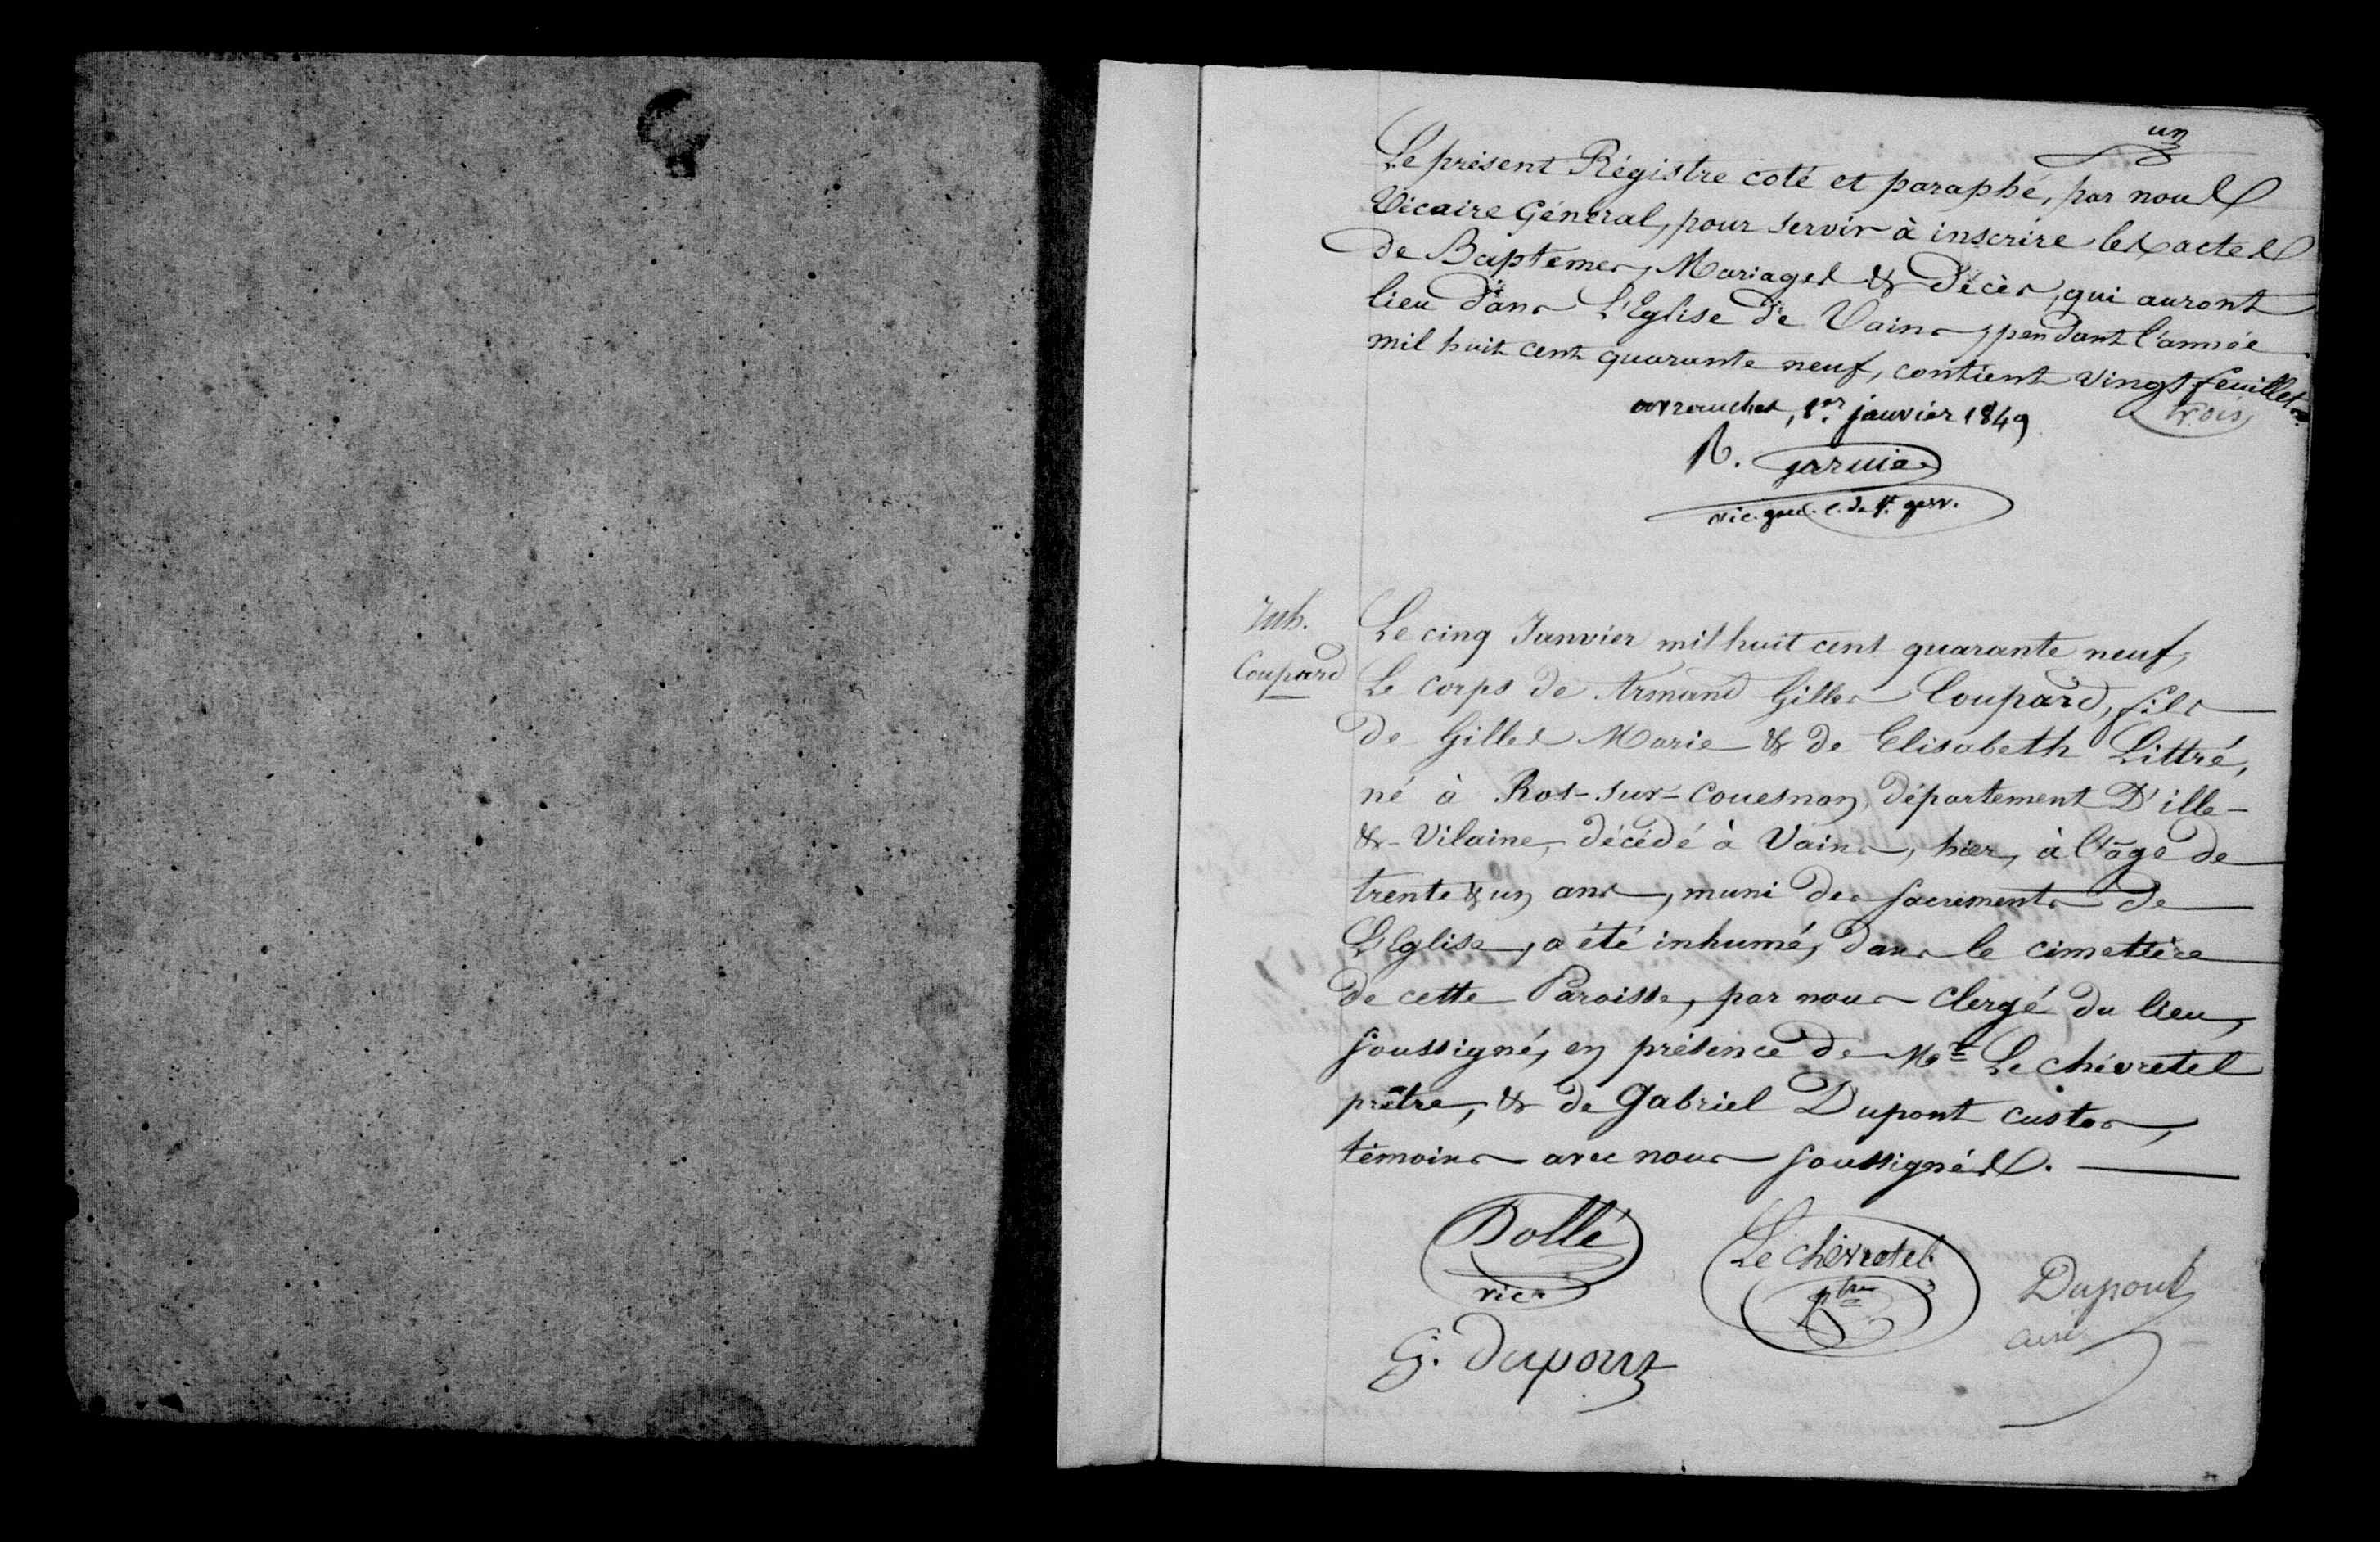 un
Le présent Régistre coté et paraphé, par nous
Vicaire Général, pour servir à inscrire les actes
de Baptêmes, Mariages & Décès, qui auront
lieu dans L'Eglise de Vains, pendant l'année
mil huit cent quarante neuf, contient vingt feuillets.
trois
avranches, 1er janvier 1849
vic. gen. c. de St. gerv.
Inh.
Coupard
Le cinq Janvier mil huit cent quarante neuf,
Le corps de Armand Gilles Coupard, fils
de Gilles Marie & de Elisabeth Littré,
né à Ros-sur-Couesnon, département D'ille-
&-Vilaine, décédé à Vains, hier, à l'âge de
trente & un ans, muni des sacrements de
L'Eglise, a été inhumé, dans le cimetière
de cette Paroisse, par nous clergé du lieu,
soussigné, en présence de Mr Le Chévretel
prêtre, & de Gabriel Dupont custos,
témoins avec nous soussignés.
Dollé
vic.
Le Chevretel
ptre
Dupont
curé
G. dupont